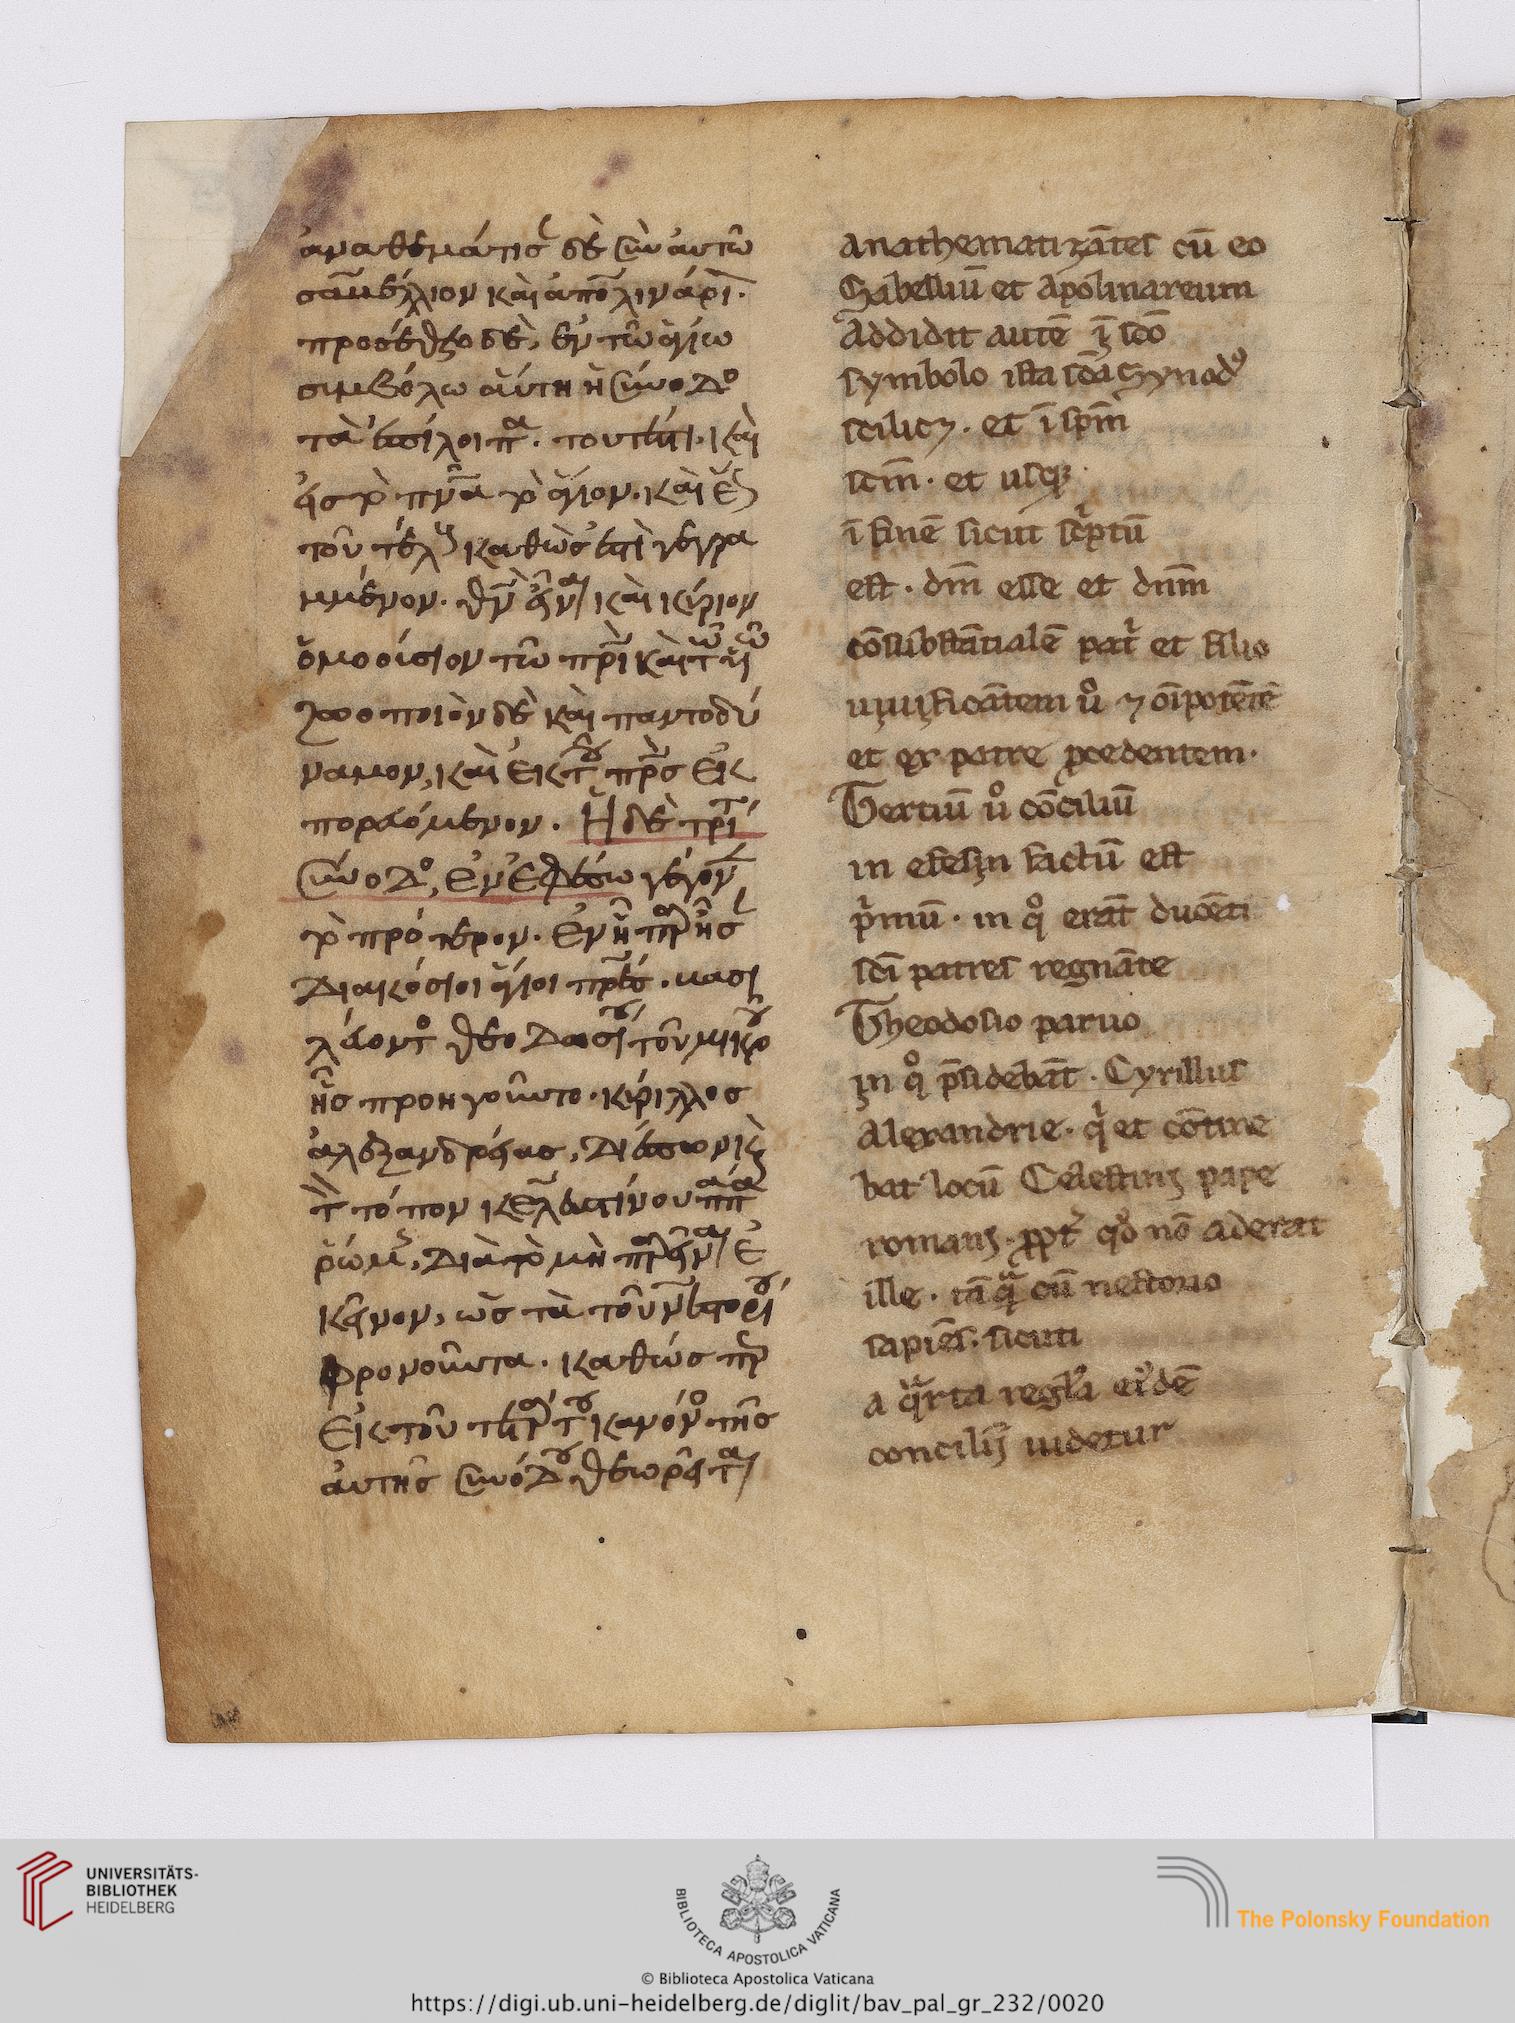 ἀναθεμάτισ δὲ σὺν αὐτῶ
σαμβέλλιον καὶ ἀπολινάρι.
προσέθξο δὲ, ἐν τῶ ἁγίω
σιμβόλω αὐτη ἡ σύνοδο
τὰ ἐπίλοιπα. τουτέστι. καὶ
εἰσ τὸ πνα τὸ ἅγιον. καὶ ἕ
τοῦ τέλ καθώσ ἐστὶ γεγρα
μμένον. θν εἶνα καὶ κύριον
ὁμοούσιον τῶ πρι καὶ τῶ υἱῶ
ζωοποιὸν δὲ καὶ παντοδύ
ναμον, καὶ ἐκ τοῦ πρσ ἐκ
πορευόμενον. Ἡ δὲ τρίτ
σύνοδο, ἐν ἐφέσω γέγον
τὸ πρότερον. ἐν ἧ παρῆσ
διακόσιοι ἅγιοι πρεσ. βασι
λεύοντο θεοδοσίου τοῦ μικροῦ
ἧσ προηγοῦντο. κύριλλοσ
ἀλεξανδρείασ, διέπων κ
τ τόπον κελεστίνου παπα
ῥώμ, διὰ τὸ μὴ παρεῖνα ἐ
κεῖνον, ὡσ τὰ τοῦ νεστορίου
φρονοῦντα. καθώσ πρ
ἐκ τοῦ τετάρτου κανόνο τῆσ
αὐτῆσ συνόδου θεωρεῖται
anathematizātes cū eo
Sabelliū et apolinareum
Addidit autē ī scō
symbolo ista scā Synodꝰ
scilicꝫ. et ī spm̄
scm̄. et usqꝫ
ī finē sicut sc̍ptū
est. dm̄ esse et dnm̄
cōsubstātialē pat̍ et filio
uiuificātem ů ⁊ oīpotētē
et ex patre ꝓcedentem.
Tertiū ů cōciliū
in efesin factū est
p̍mū. in q̊ erāt ducēti
scī patres regnāte
Theodosio paruo
in q̊ p̄sidebāt. Cyrillus
alexandrie. q̍ et cōtine
bat locū Celestini pape
romani. ꝓpt̍ qd̍ nō aderat
ille. tāqᷓ cū nestorio
sapiēs. sicuti
a qᷓrta regl̍a eiꝰdē
concilij uidetur
UNIVERSITÄTS-
BIBLIOTHEK
HEIDELBERG
BIBLIOTECA APOSTOLICA VATICANA
© Biblioteca Apostolica Vaticana
The Polonsky Foundation
https://digi.ub.uni-heidelberg.de/diglit/bav_pal_gr_232/0020